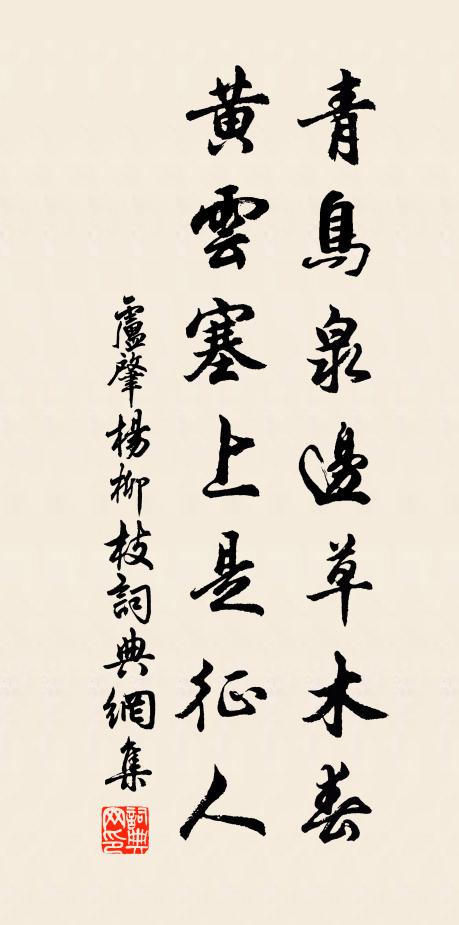 青鳥泉邊草木春
黃雲塞上是征人
盧肇楊柳枝詞典網集
詞典網印